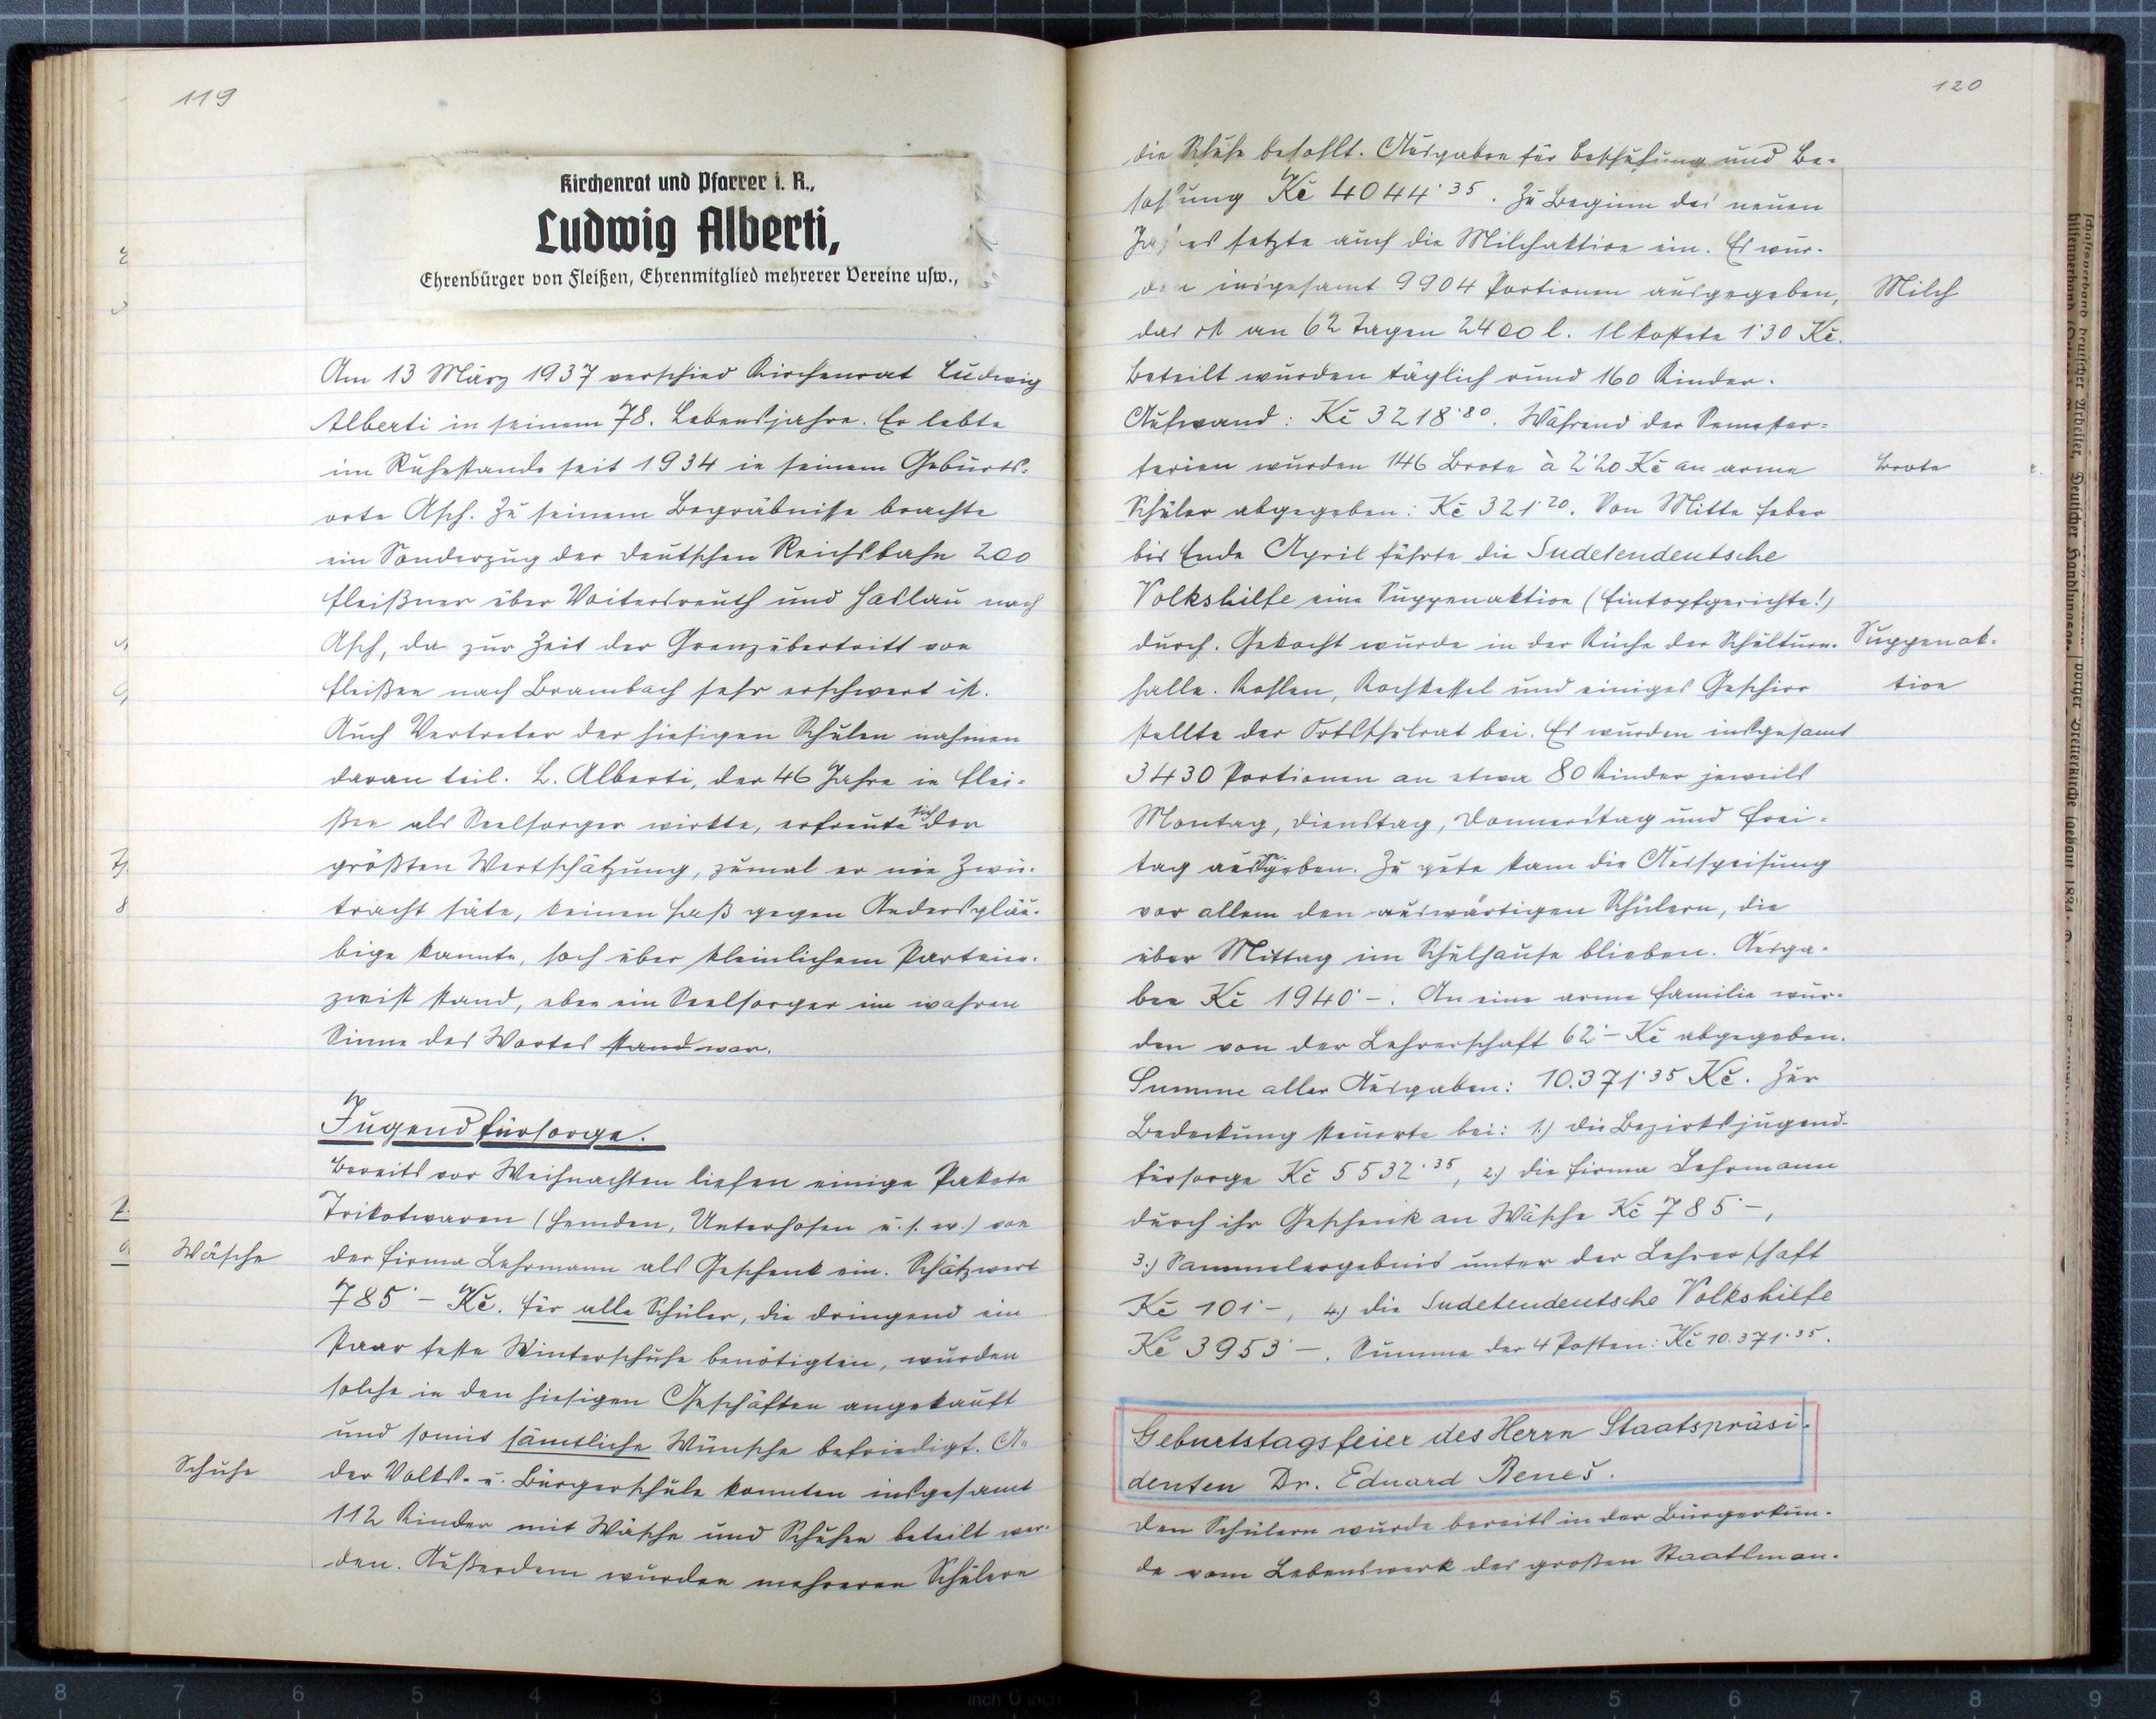 119
Kirchenrat und Pfarrer i. R.,
Ludwig Alberti,
Ehrenbürger von Fleißen, Ehrenmitglied mehrerer Vereine usw.,
Am 13 März 1937 verschied Kirchenrat Ludwig
Alberti in seinem 78. Lebensjahre. Er lebte
im Ruhestande seit 1934 in seinem Geburts-
orte Asch. Zu seinem Begräbnisse brachte
ein Sonderzug der deutschen Reichsbahn 200
Fleißner über Voitersreuth und Haslau nach
Asch, da zur Zeit der Grenzübertritt von
Fleißen nach Brambach sehr erschwert ist.
Auch Vertreter der hiesigen Schulen nahmen
daran teil. L. Alberti, der 46 Jahre in Flei-
ßen als Seelsorger wirkte, erfreute sich der
größten Wertschätzung, zumal er nie Zwie-
tracht säte, keinen Haß gegen Andersgläu-
bige kannte, hoch über kleinlichem Parteien-
zwist stand, eben ein Seelsorger im wahren
Sinne des Wortes stand war.
Jugendfürsorge.
Bereits vor Weihnachten liefen einige Pakete
Trikotwaren (Hemden, Unterhosen u. s. w.) von
Wäsche
der Firma Lehrmann als Geschenk ein. Schätzwert
785·– Kč. Für alle Schüler, die dringend ein
Paar feste Winterschuhe benötigten, wurden
solche in den hiesigen Geschäften angekauft
und somit sämtliche Wünsche befriedigt. An
Schuhe
der Volks- u. Bürgerschule konnten insgesamt
112 Kinder mit Wäsche und Schuhen beteilt wer-
den. Außerdem wurden mehreren Schülern
120
die Schuhe besohlt. Ausgaben für Beschuhung und Be-
sohlung Kč 4044·35. Zu Beginn des neuen
Jahres setzte auch die Milchaktion ein. Es wur-
den insgesamt 9904 Portionen ausgegeben,
Milch
das ist an 62 Tagen 2400 l. 1l kostete 1·30 Kč.
Beteilt wurden täglich rund 160 Kinder.
Aufwand: Kč 3218·80. Während der Semester-
ferien wurden 146 Brote à 2·20 Kč an arme
Brote
Schüler abgegeben: Kč 321·20. Von Mitte Feber
bis Ende April führte die Sudetendeutsche
Volkshilfe eine Suppenaktion (Eintopfgerichte!)
durch. Gekocht wurde in der Küche der Schulturn-
Suppenak-
halle. Kohlen, Kochkessel und einiges Geschirr
tion
stellte der Ortsschulrat bei. Es wurden insgesamt
3430 Portionen an etwa 80 Kinder jeweils
Montag, Dienstag, Donnerstag und Frei-
tag ausgegeben. Zu gute kam die Ausspeisung
vor allem den auswärtigen Schülern, die
über Mittag im Schulhause blieben. Ausga-
ben Kč 1940·–. An eine arme Familie wur-
den von der Lehrerschaft 62·– Kč abgegeben.
Summe aller Ausgaben: 10.371·35 Kč. Zur
Bedeckung steuerte bei: 1.) die Bezirksjugend-
fürsorge Kč 5532·35, 2.) die Firma Lehrmann
durch ihr Geschenk an Wäsche Kč 785·–,
3.) Sammelergebnis unter der Lehrerschaft
Kč 101·–, 4.) die Sudetendeutsche Volkshilfe
Kč 3953·–. Summe der 4 Posten: Kč 10.371·35.
Geburtstagsfeier des Herrn Staatspräsi-
denten Dr. Eduard Beneš.
Den Schülern wurde bereits in der Bürgerkun-
de vom Lebenswerk des großen Staatsman-
8 7 6 5 4 3 2 1 inch 0 inch 1 2 3 4 5 6 7 8 9